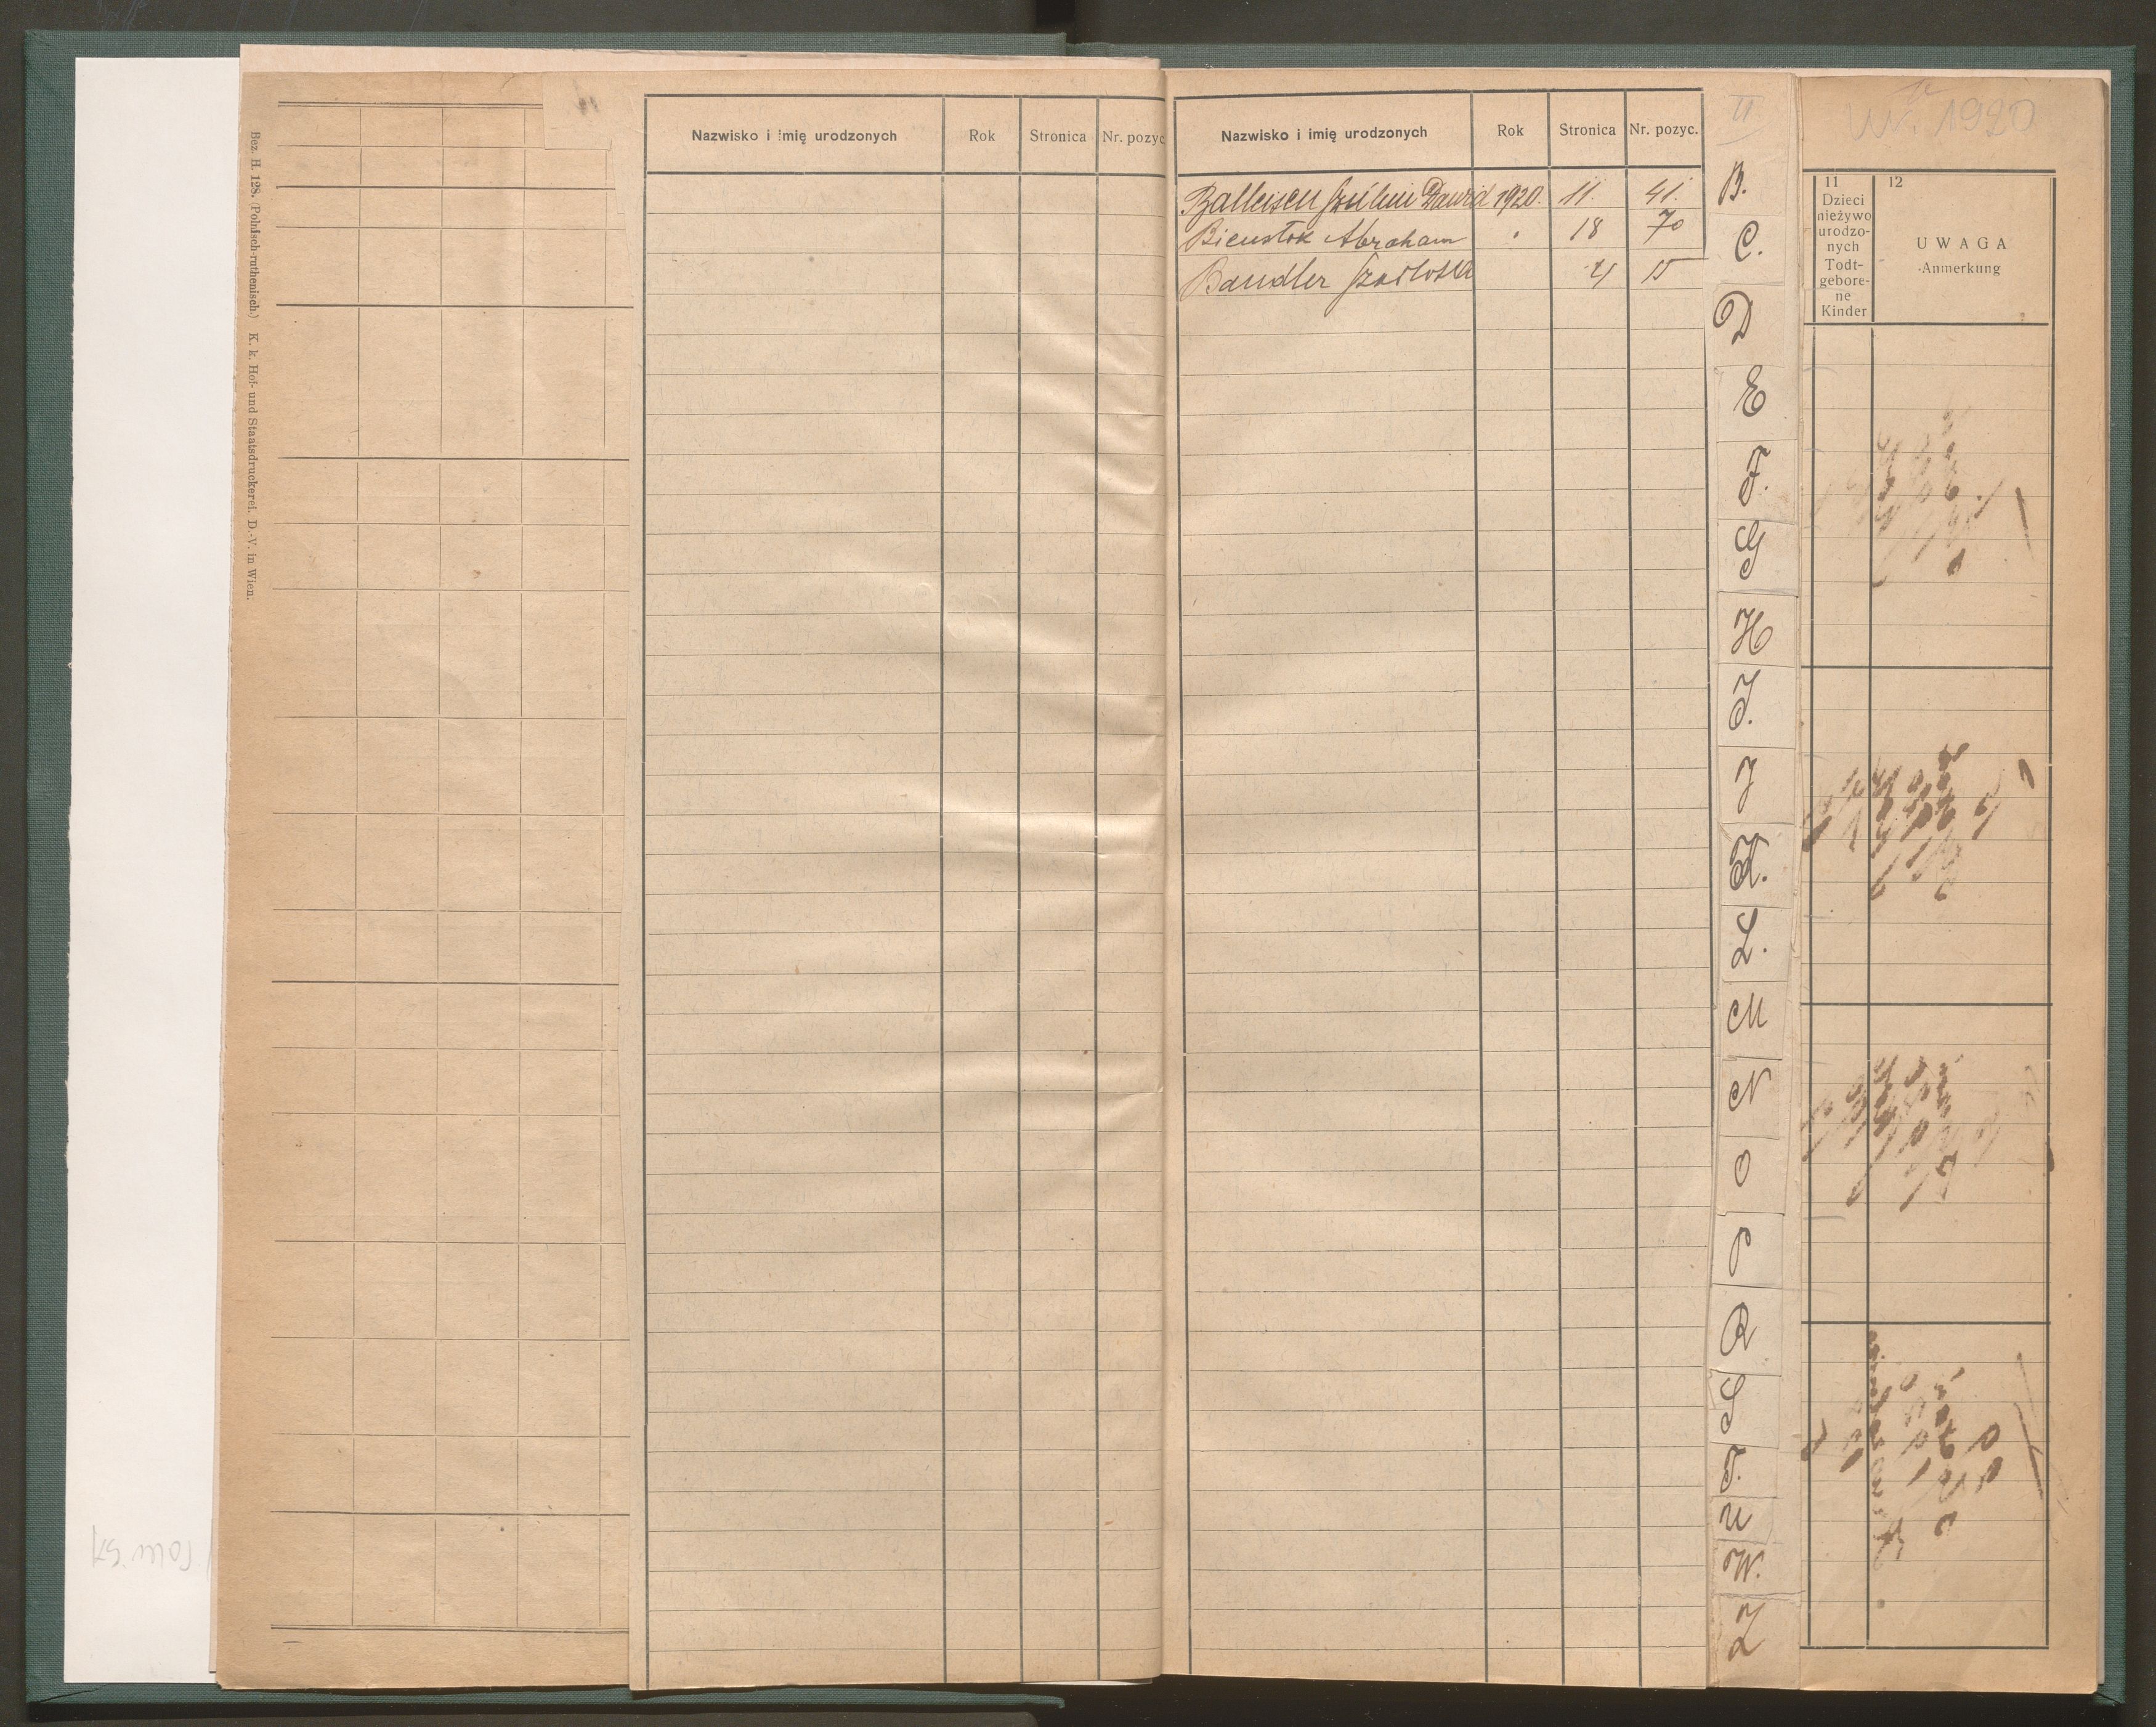 Bez. H. 128. (Polnisch-ruthenisch.) K. k. Hof- und Staatsdruckerei. D.-V. in Wien.
Nazwisko i imię urodzonych Rok Stronica Nr. pozyc
Nazwisko i imię urodzonych Rok Stronica Nr. pozyc.
Dawid 1920. 11. 41.
Bienstok Abraham 18 70
Bandler 4 15
II
B.
C.
D
E
F.
G
H
I.
J
K.
L.
M
N
O
P
R
S
T.
U
W.
Z
1920
11
Dzieci
nieżywo
urodzo-
nych
Todt-
gebore-
ne
Kinder
12
UWAGA
Anmerkung